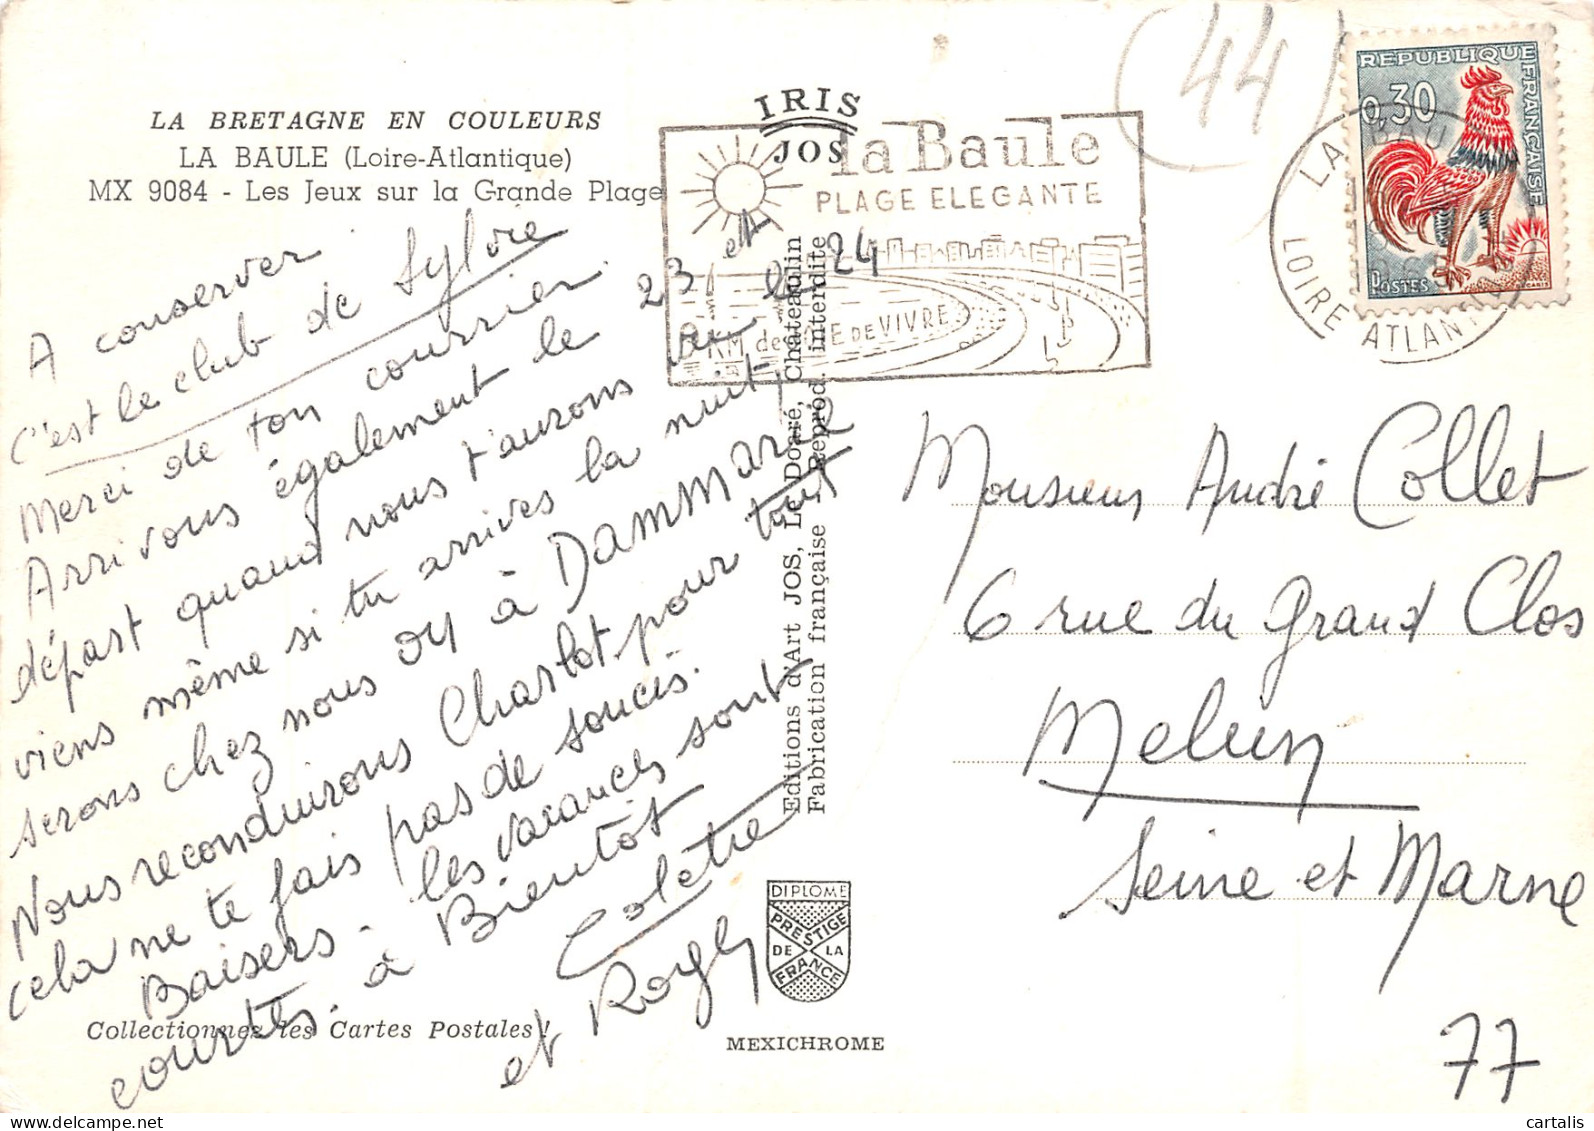 LA BRETAGNE EN COULEURS
LA BAULE (Loire-Atlantique)
MX 9084 - Les Jeux sur la Grande Plage
IRIS
JOS
la Baule
PLAGE ELEGANTE
KM de JOIE DE VIVRE
44
REPUBLIQUE
FRANÇAISE
0,30
POSTES
LA BAULE
LOIRE ATLANTIQUE
A conserver
C'est le club de Sylvie
Merci de ton courrier.
Arrivons également le 23 et
départ quand nous t'aurons vu le 24
viens même si tu arrives la nuit,
serons chez nous ou à DamMarie
Nous reconduirons Charlot pour tout
cela ne te fais pas de soucis.
Baisers. les vacances sont
courtes. à Bientôt
Colette
et Roger
Editions d'Art JOS, Le Doaré, Châteaulin
Fabrication française - Reprod. interdite
Monsieur André Collet
6 rue du Grand Clos
Melun
Seine et Marne
77
DIPLOME
PRESTIGE
DE LA
FRANCE
Collectionnez les Cartes Postales !
MEXICHROME
cartalis
www.delcampe.net